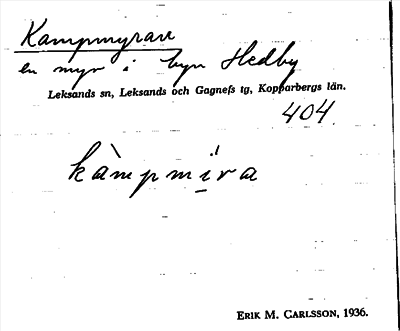 Kampmyran
en myr i byn Hedby
Leksands sn, Leksands och Gagnefs tg, Kopparbergs län.
404.
kàmpmìṟa
ERIK M. CARLSSON, 1936.